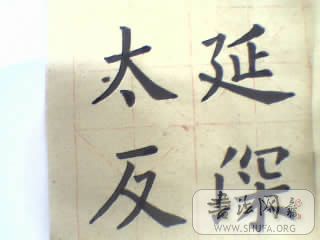 太延
反
书法网
WWW.SHUFA.ORG